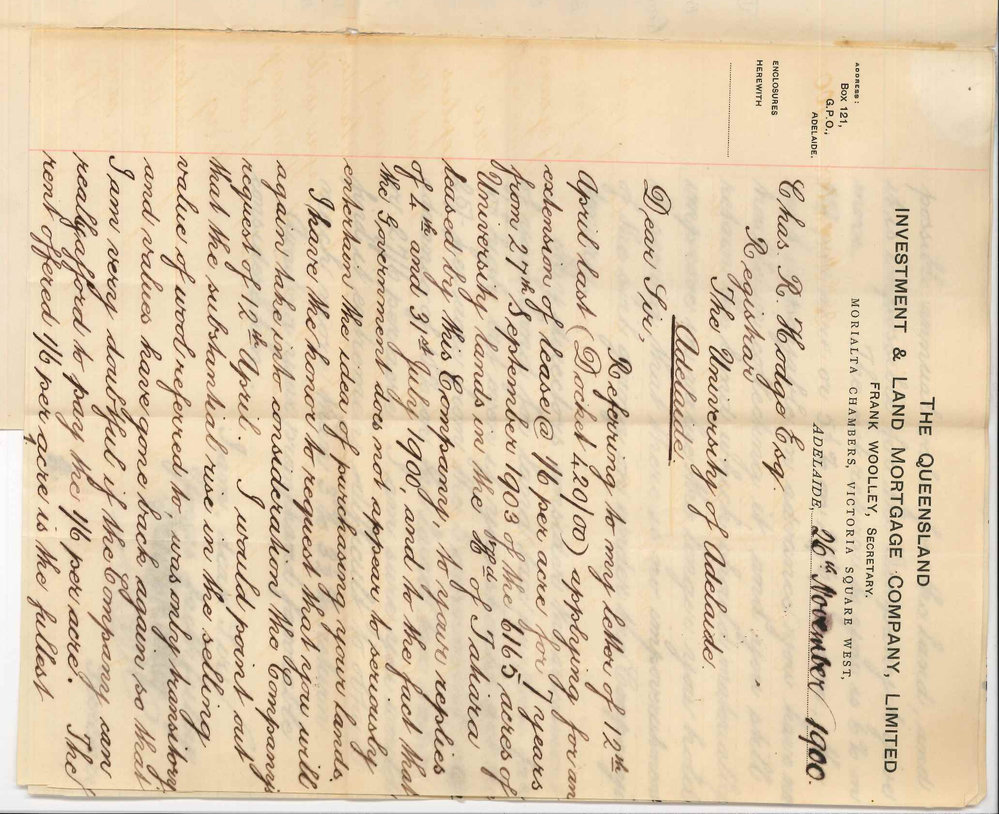 THE QUEENSLAND
INVESTMENT & LAND MORTGAGE COMPANY, LIMITED
FRANK WOOLLEY, SECRETARY.
MORIALTA CHAMBERS, VICTORIA SQUARE WEST,
ADDRESS:
Box 121,
G.P.O.,
ADELAIDE.
ADELAIDE, 26th November 1900.
ENCLOSURES
HEREWITH
Chas. R. Hodge Esq.
Registrar
The University of Adelaide.
Adelaide.
Dear Sir,
Referring to my letter of 12th
April last (Docket 420/00) applying for an
extension of lease @ 1/6 per acre for 7 years
from 27th September 1903 of the 6165 acres of
University lands in the Hd of Tahara
leased by this Company, to your replies
of 4th and 31st July 1900, and to the fact that
the Government does not appear to seriously
entertain the idea of purchasing your lands,
I have the honor to request that you will
again take into consideration the Company's
request of 12th April. I would point out
that the substantial rise in the selling
value of wool referred to, was only transitory
and values have gone back again so that
I am very doubtful if the Company can
really afford to pay the 1/6 per acre. The
rent offered 1/6 per acre is the fullest